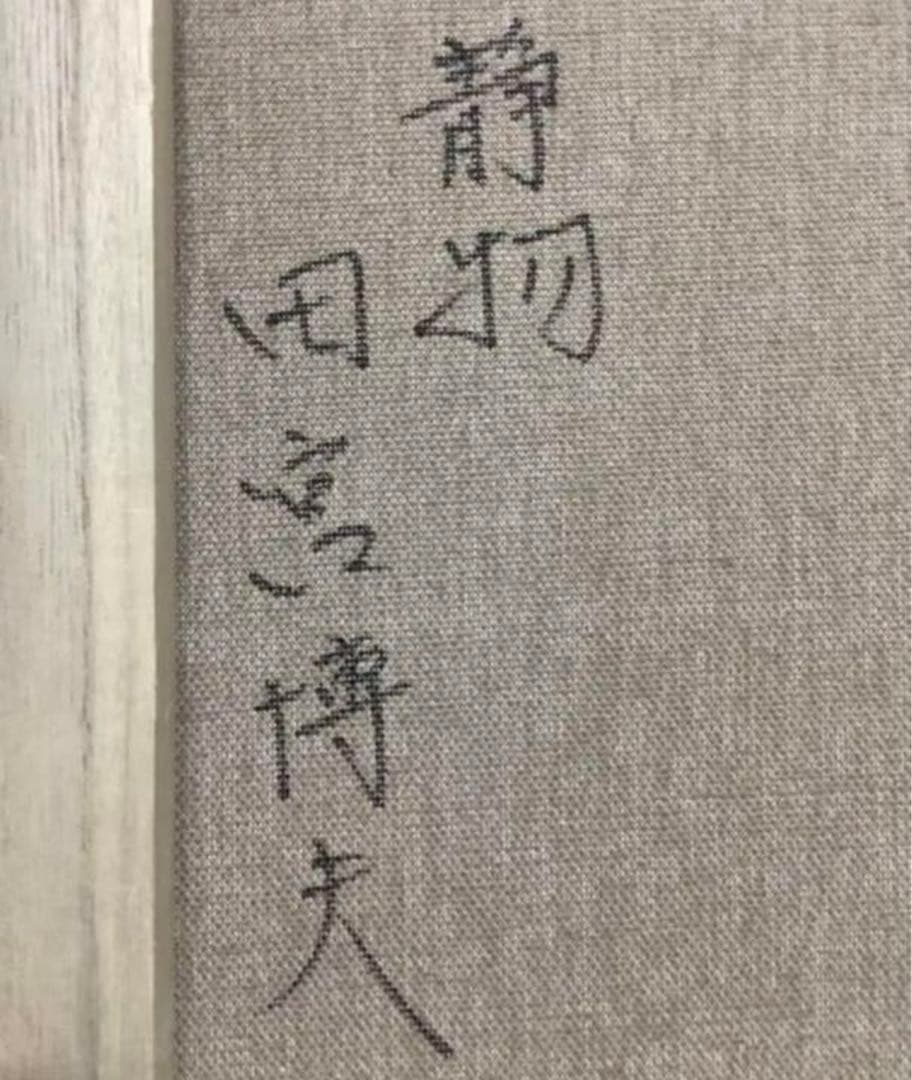 静物
田宮博夫